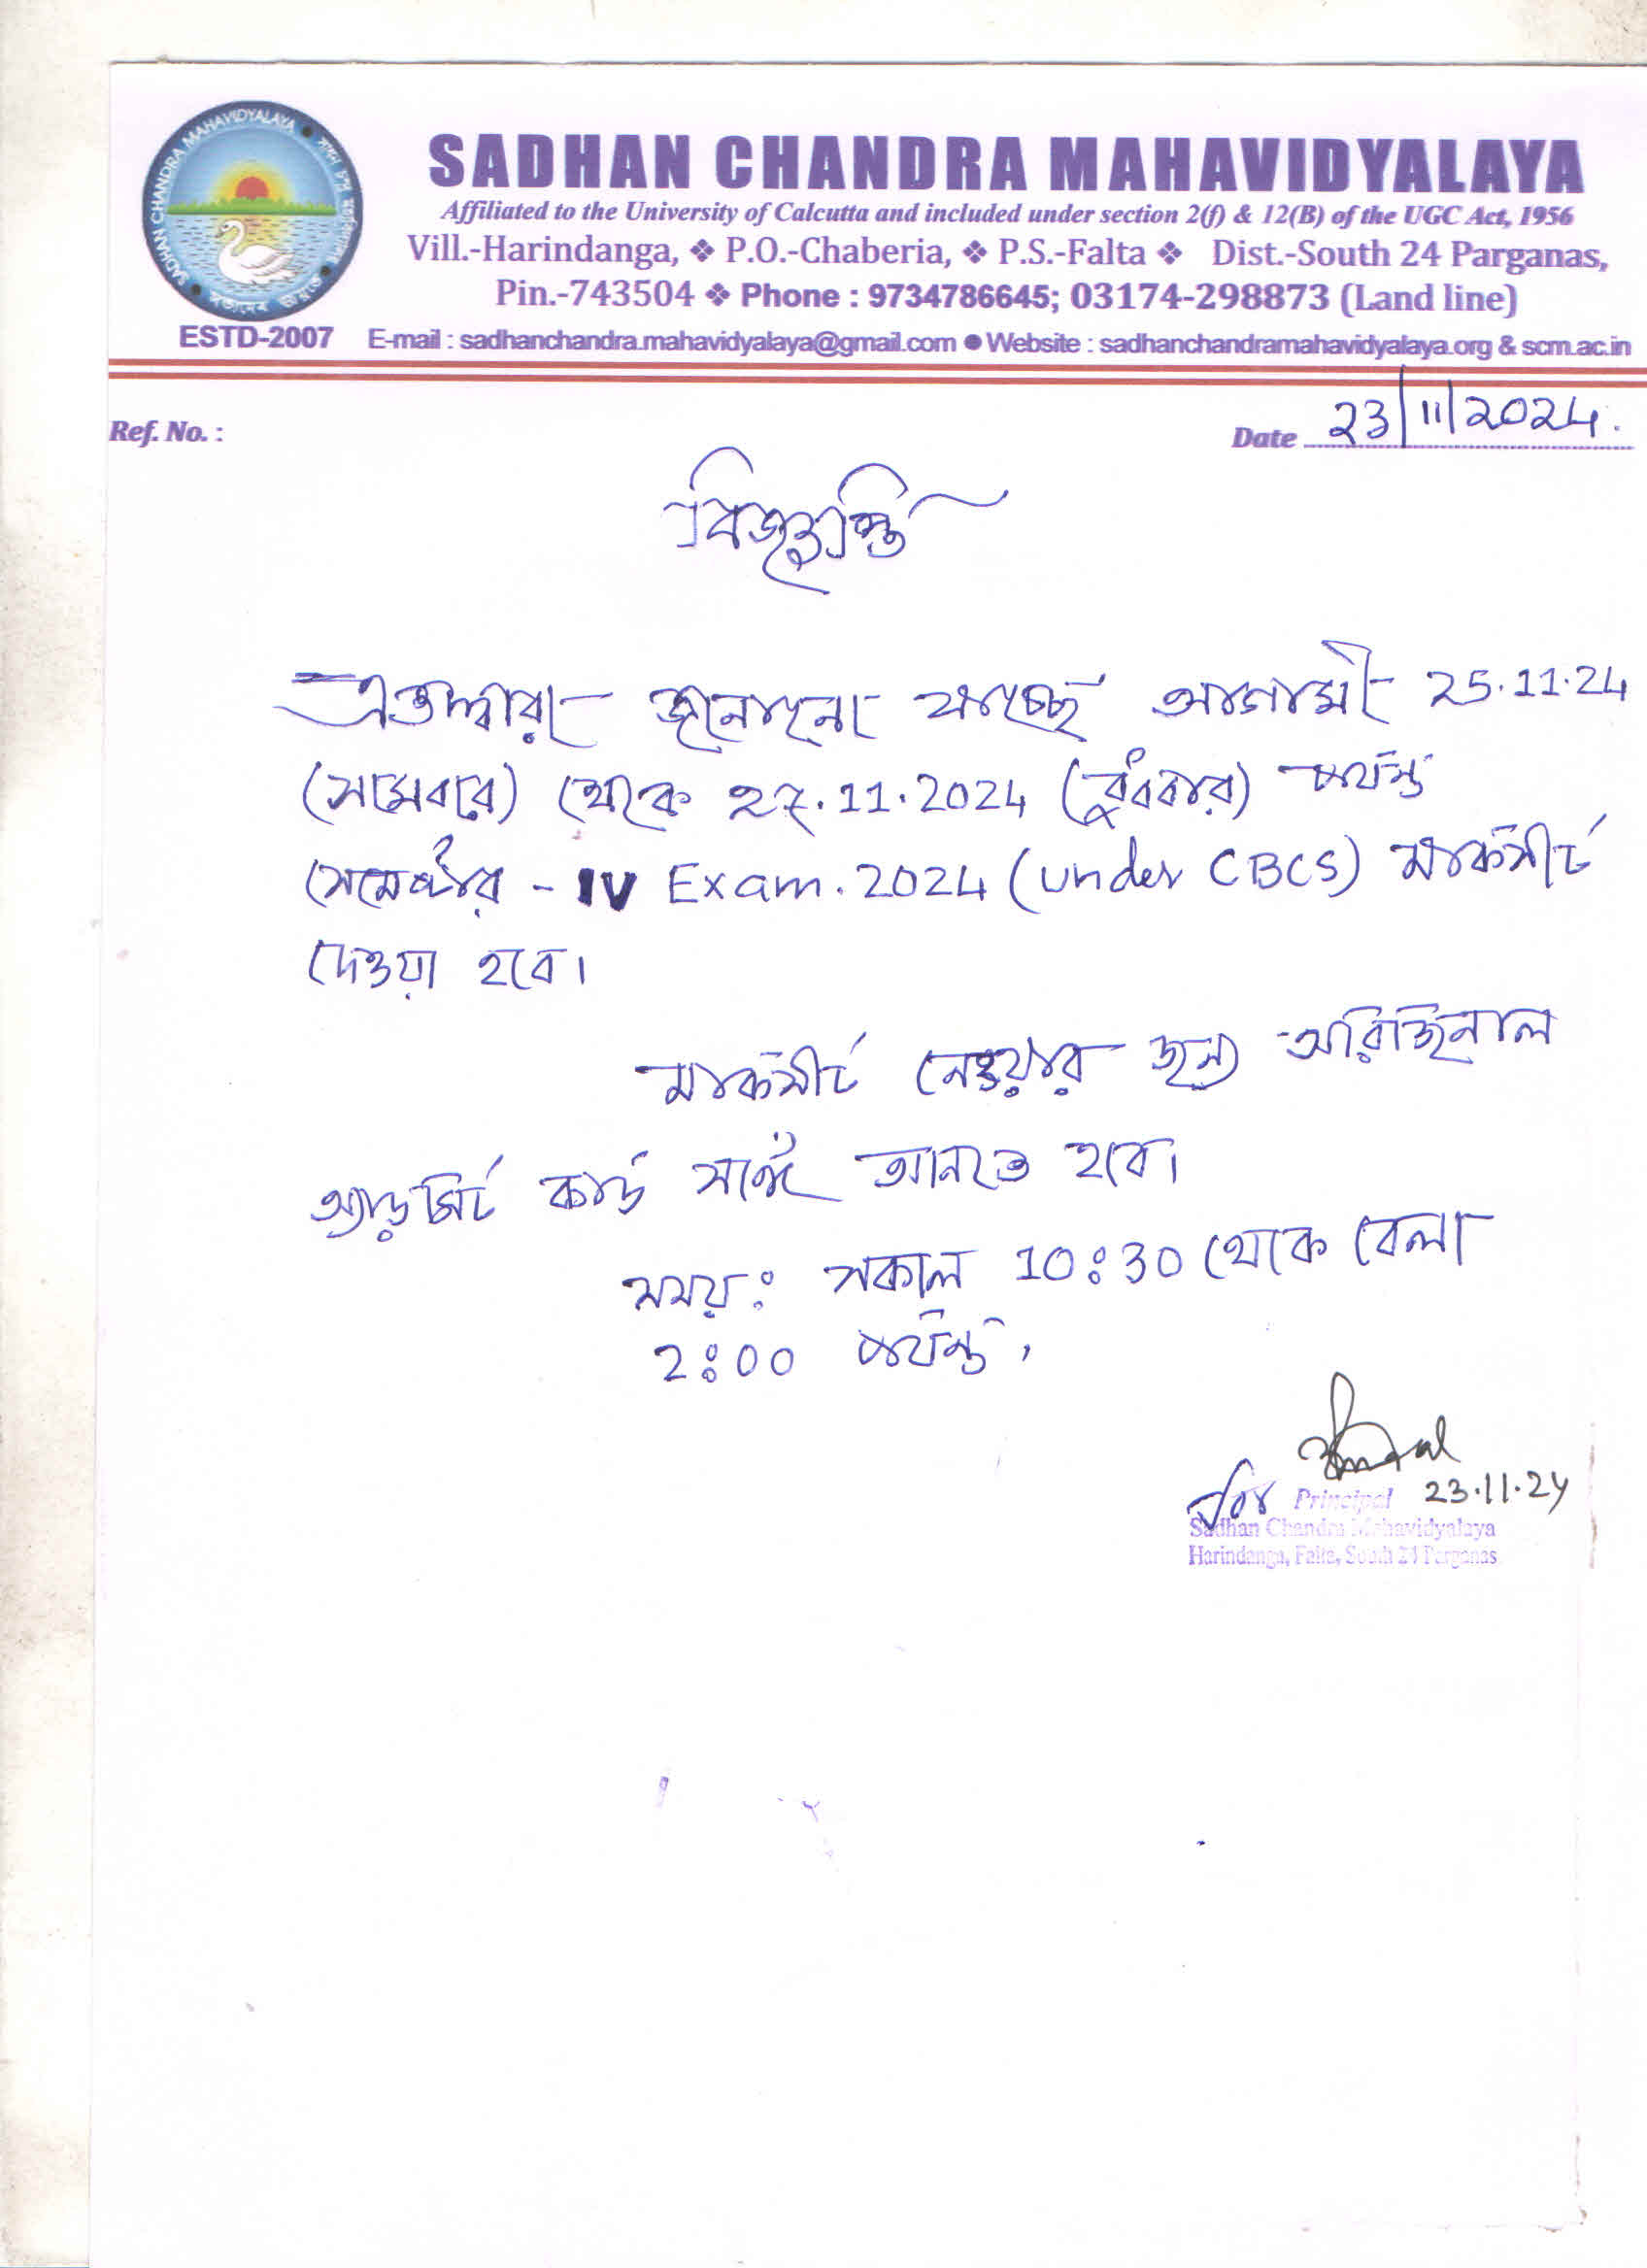 SADHAN CHANDRA MAHAVIDYALAYA
SADHAN CHANDRA MAHAVIDYALAYA
Affiliated to the University of Calcutta and included under section 2(f) & 12(B) of the UGC Act, 1956
Vill.-Harindanga, ❖ P.O.-Chaberia, ❖ P.S.-Falta ❖ Dist.-South 24 Parganas,
Pin.-743504 ❖ Phone : 9734786645; 03174-298873 (Land line)
ESTD-2007 E-mail : sadhanchandra.mahavidyalaya@gmail.com ● Website : sadhanchandramahavidyalaya.org & scm.ac.in
Ref. No. : Date 23/11/2024.
বিজ্ঞপ্তি
এতদ্বারা জানানো যাচ্ছে আগামী 25.11.24
(সোমবার) থেকে 27.11.2024 (বুধবার) পর্যন্ত
সেমেস্টার - IV Exam. 2024 (under CBCS) মার্কসীট
দেওয়া হবে।
মার্কসীট নেওয়ার জন্য অরিজিনাল
অ্যাডমিট কার্ড সঙ্গে আনতে হবে।
সময়: সকাল 10:30 থেকে বেলা
2:00 পর্যন্ত,
for Principal 23.11.24
Sadhan Chandra Mahavidyalaya
Harindanga, Falta, South 24 Parganas